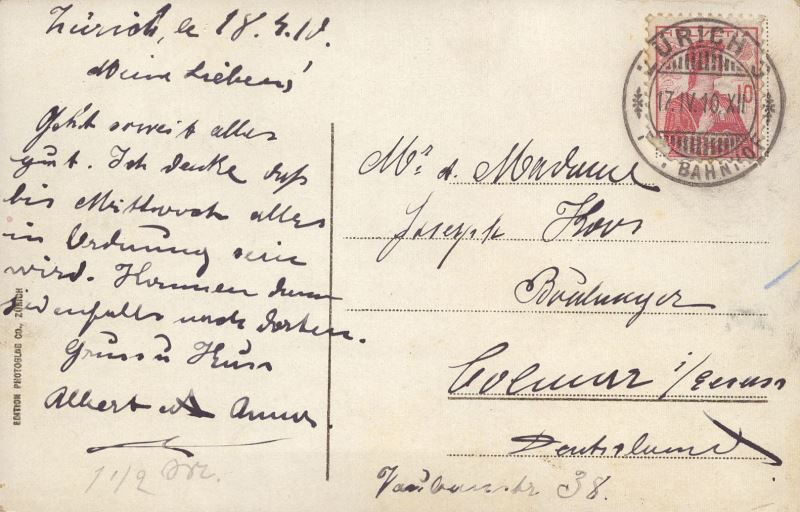 Zürich, le 18.4.10.
Meine Lieben!
Geht soweit alles
gut. Ich denke daß
bis Mittwoch alles
in Ordnung sein
wird. Kommen dann
jedenfalls nach dorten.
Gruss u Kuss
Albert u Anna.
1 1/2 M.
EDITION PHOTOGLOB CO., ZÜRICH
ZÜRICH
10
17.IV.10.XII
BAHNHOF
Mr. & Madame
Joseph Koos
Boulanger
Colmar i/Elsass
Deutschland
Vaubanstr 38.